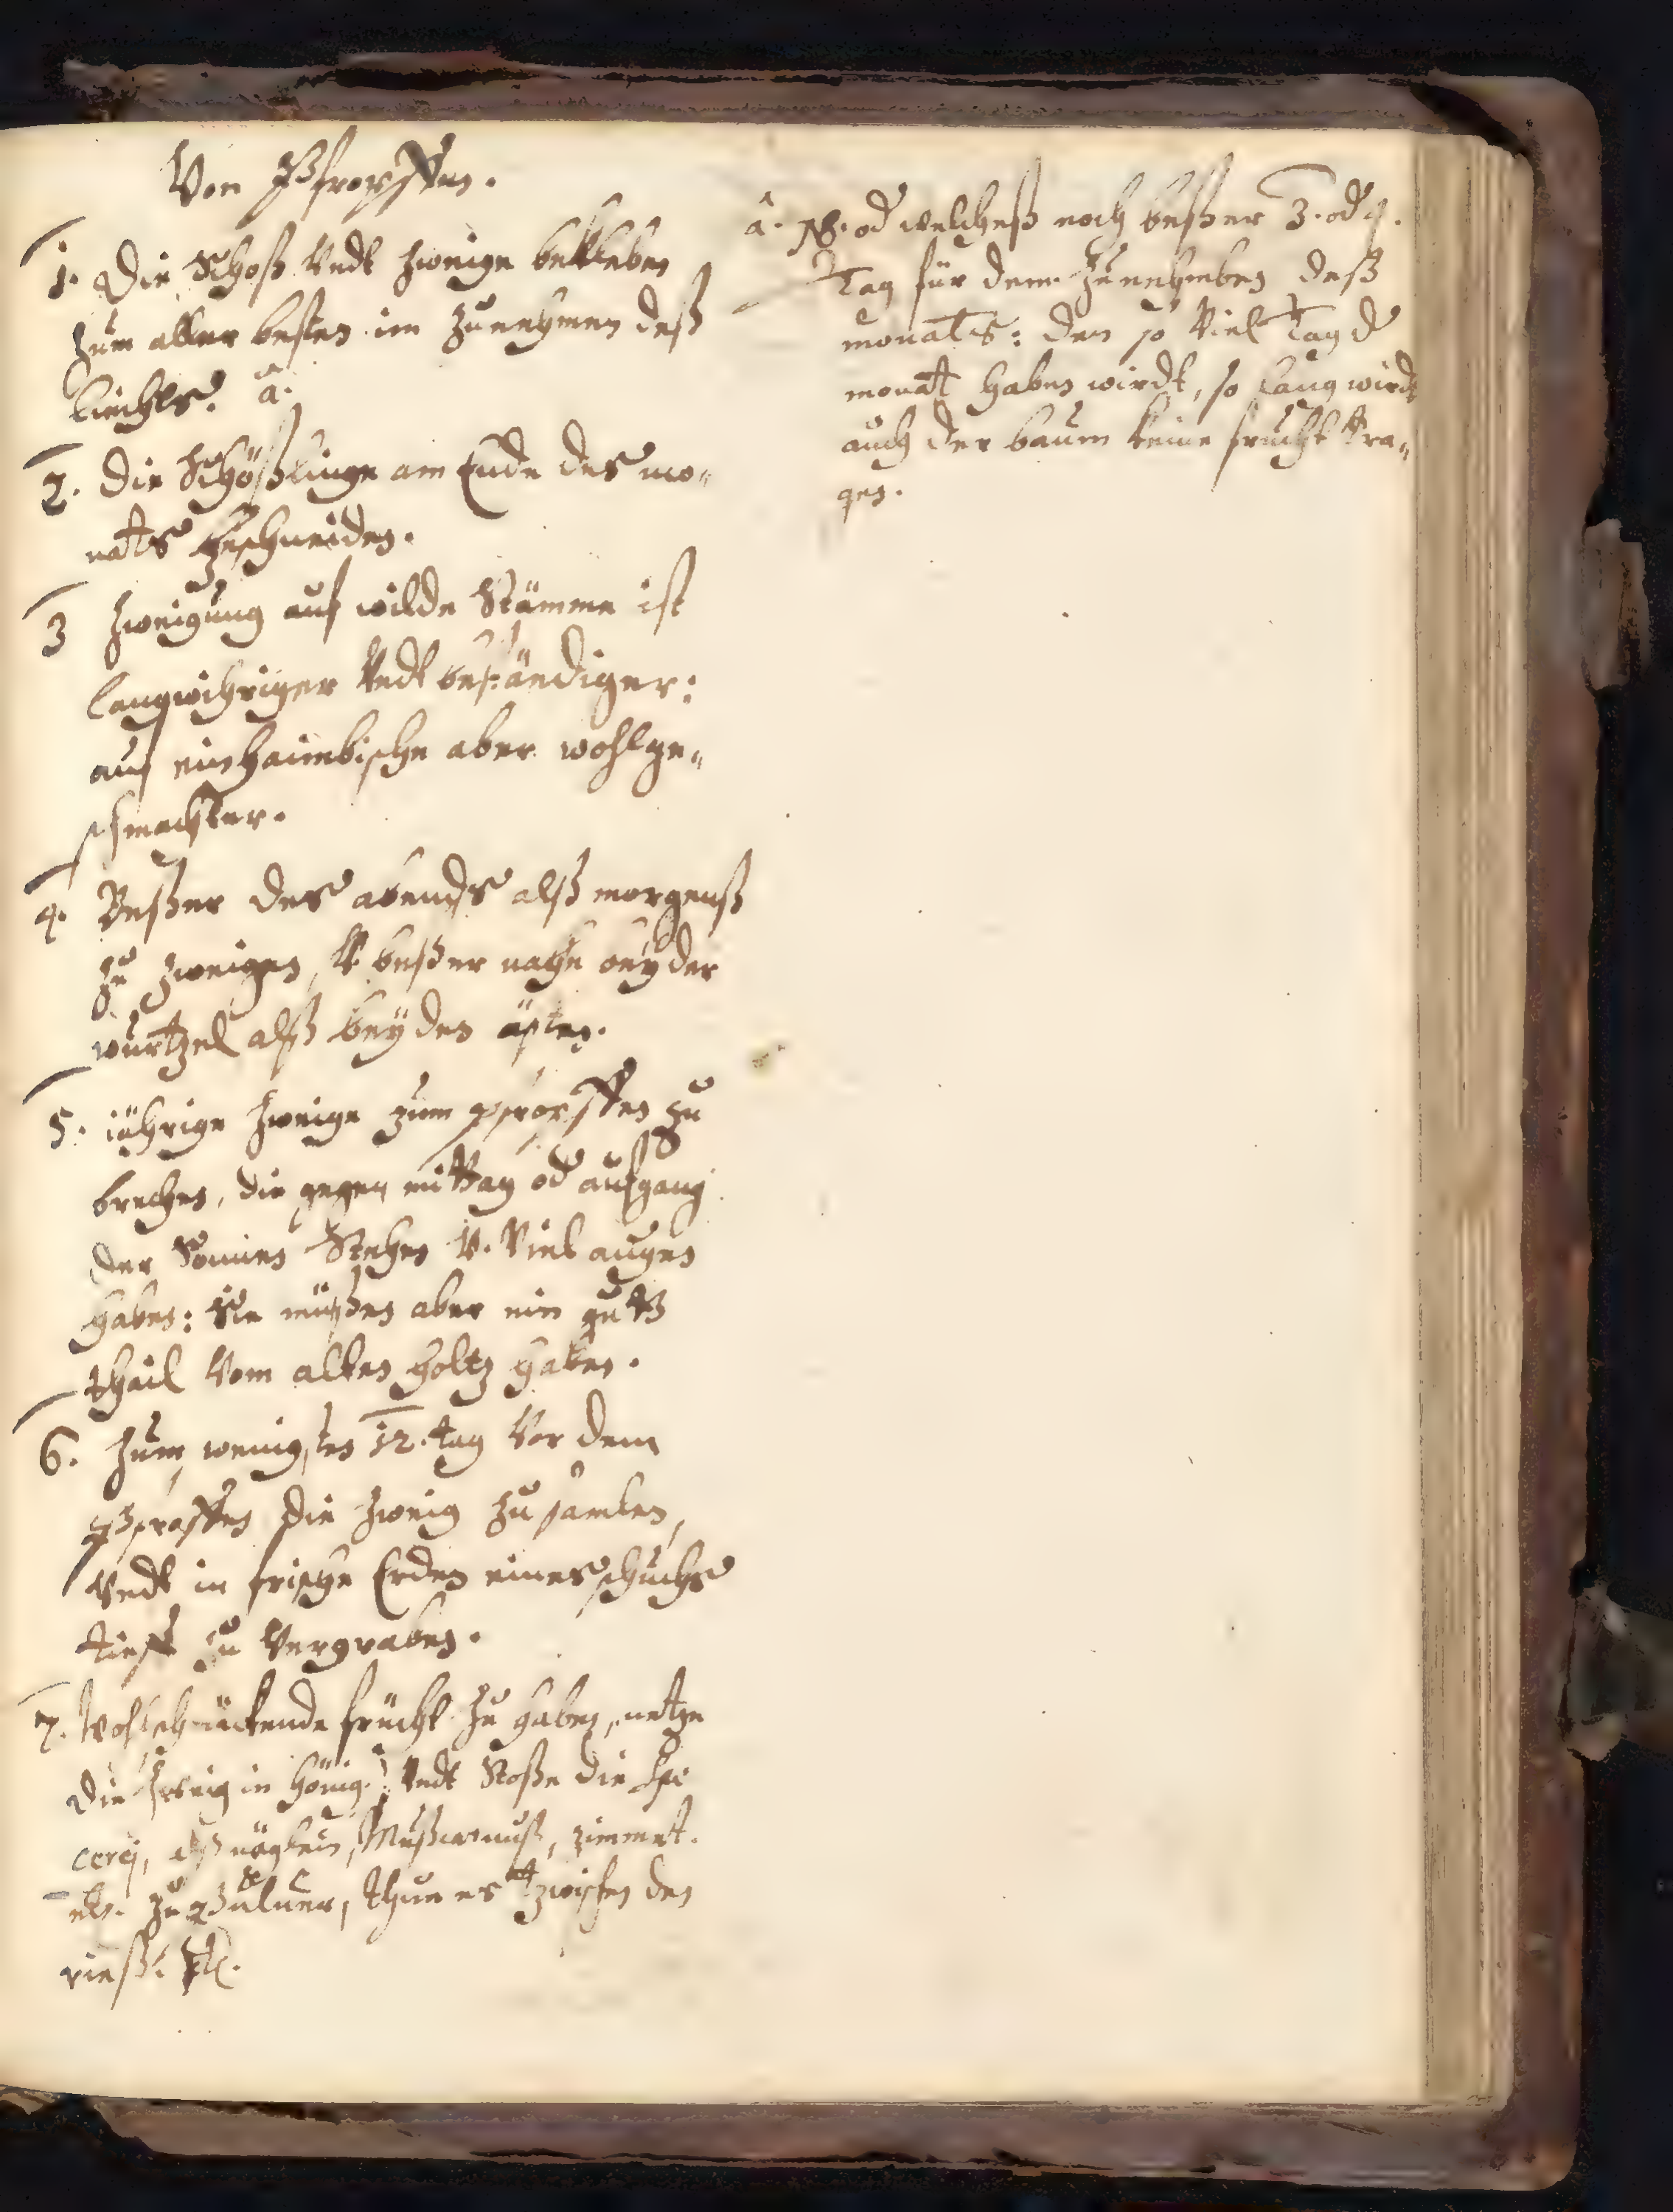 Von Pfropffen.
1. Die Schoß Vndt Zweige bekleben
zum aller besten im Zunehmen deß
Liechts. a.
2. Die Schößlinge am Ende des mo„
nats zuschneiden.
3 Zweigung auf wilde Stämme ist
langwihriger Vndt beständiger:
auf einhaimbische aber wohlge„
schmachter.
4. Beßer des abends alß morgenß
zu zweigen, V. beßer nahe bey der
wurtzel alß bey den ästen.
5. iährige Zweige zum pfropffen zu
brechen, die gegen mittag od aufgang
der Sonnen Stehen V. Viel augen
haben: Sie müßen aber ein gutß
thail Vom alten holtz haben.
6. Zum wenigsten 12. tag Vor dem
Pfropffen die Zweig zu samlen,
Vndt in frische Erden eines schuchs
tieff zu Vergraben.
7. Wohlschmäckende frücht zu haben, netze
die Zweig in hönig, Vndt Stoße die Spe
cerej, alß näglein, Mußcatnuß, zimmet.
etc. zu Puluer, thue es zwischen den
rieß: etc.
a. NB. od welcheß noch beßer 3. od 4.
Tag für dem Zunehmben deß
monats: den so Viel Tag d
monat haben wirdt, so lang wirdt
auch der baum keine frucht tra„
gen.